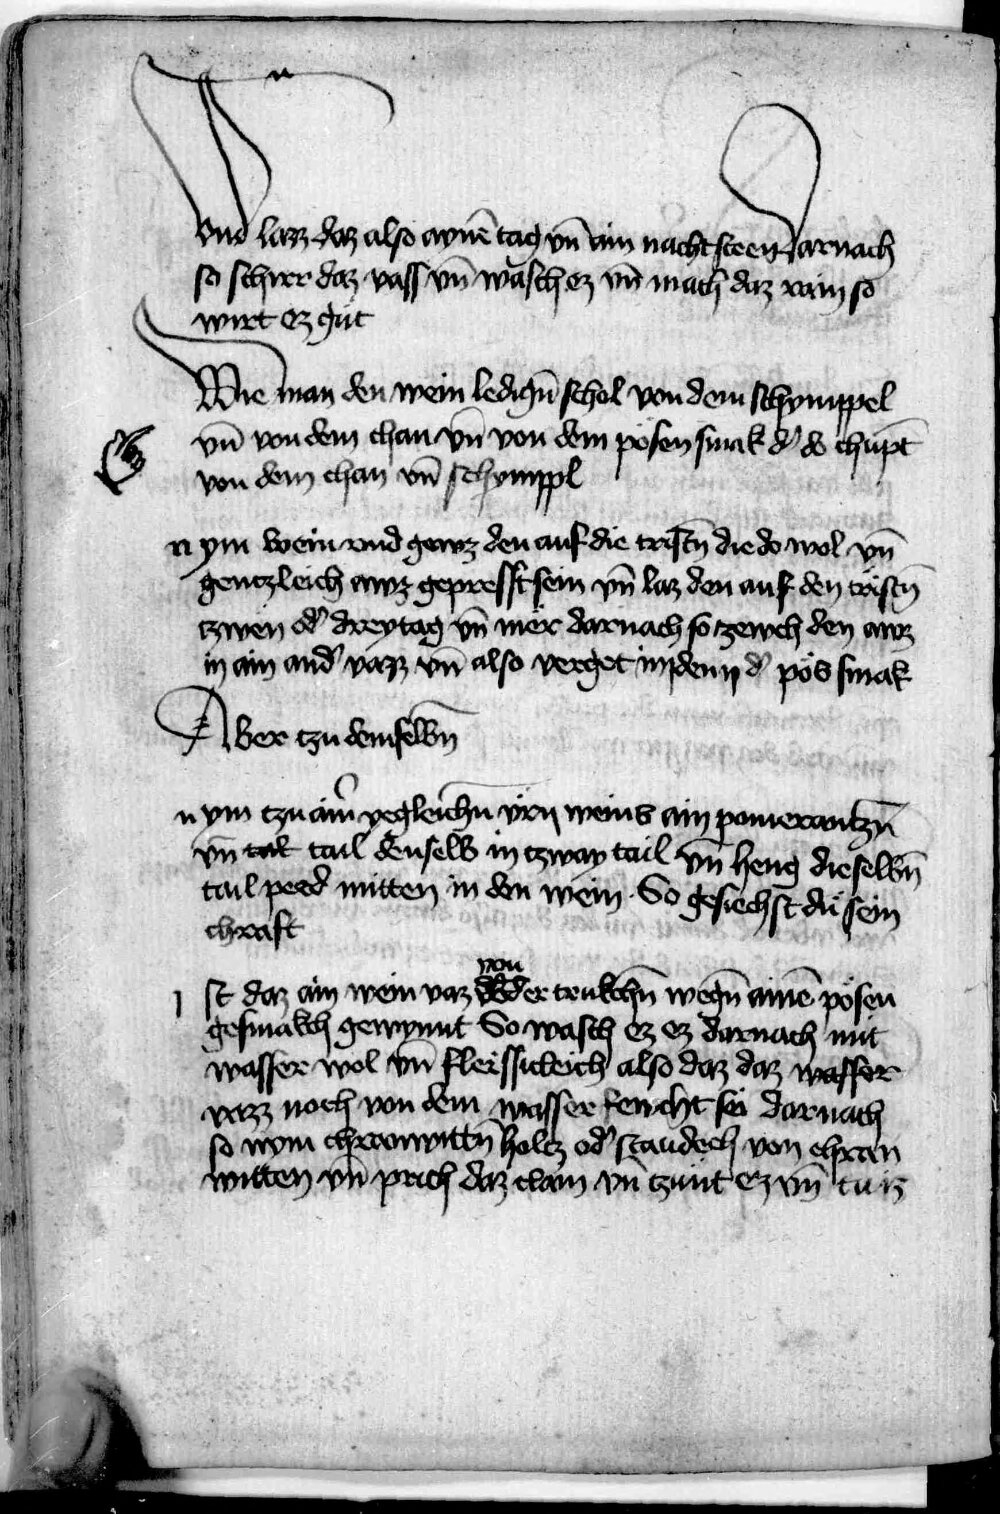 Vnd lazz daz also aynē tag vn̄ ain nacht steen Darnach
so schwr daz vass vn̄ wasch ez vn̄ mach daz rain so
wirt ez gut
Wie man den wein ledign̄ schol von dem schymppel
vn̄ von dem chan vn̄ von dem pösen smak d' do chūpt
von dem chan vn̄ schymppl
nym wein vnd gewz den auf die tristn̄ die do wol vn̄
gentzleich awz gepresst sein vn̄ laz den auf den tristn̄
tzwen od' drey tag vn̄ mer darnach so tzewch den awz
in ain and' vazz vn̄ also verget im denn d' pös smak
Aber tzu demselbn̄
nym tzu aim̄ yegleichn̄ vrn weins ain pomerantzn̄
vn̄ tail denselb in tzway tail vn̄ heng dieselbn̄
tail ped' mitten in den wein So gesiechst du sein
chraft
Ist daz ain wein vaz von der trukchn̄ wegn̄ ainē pösen
gesmakch gewynnt So wasch ez ez darnach mit
wasser wol vn̄ fleissicleich also daz daz wasser
vazz noch von dem wasser fewcht sei darnach
so nym chranwittn̄ holtz od' staudech von chran
witten vn̄ prich daz clain vn̄ tzünt ez vn̄ tu iz